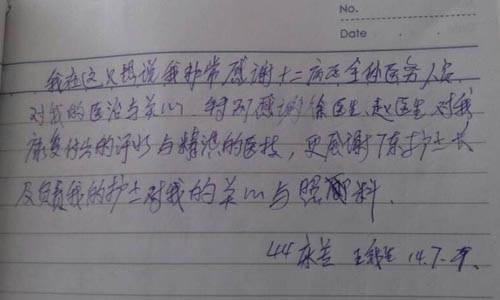 No.
Date
我在这只想说我非常感谢十二病区全体医务人员
对我的医治与关心.特别感谢徐医生、赵医生对我
康复付出的汗水与精湛的医技,更感谢陈护士长
及负责我的护士对我的关心与照料.
44床 王 14.7.